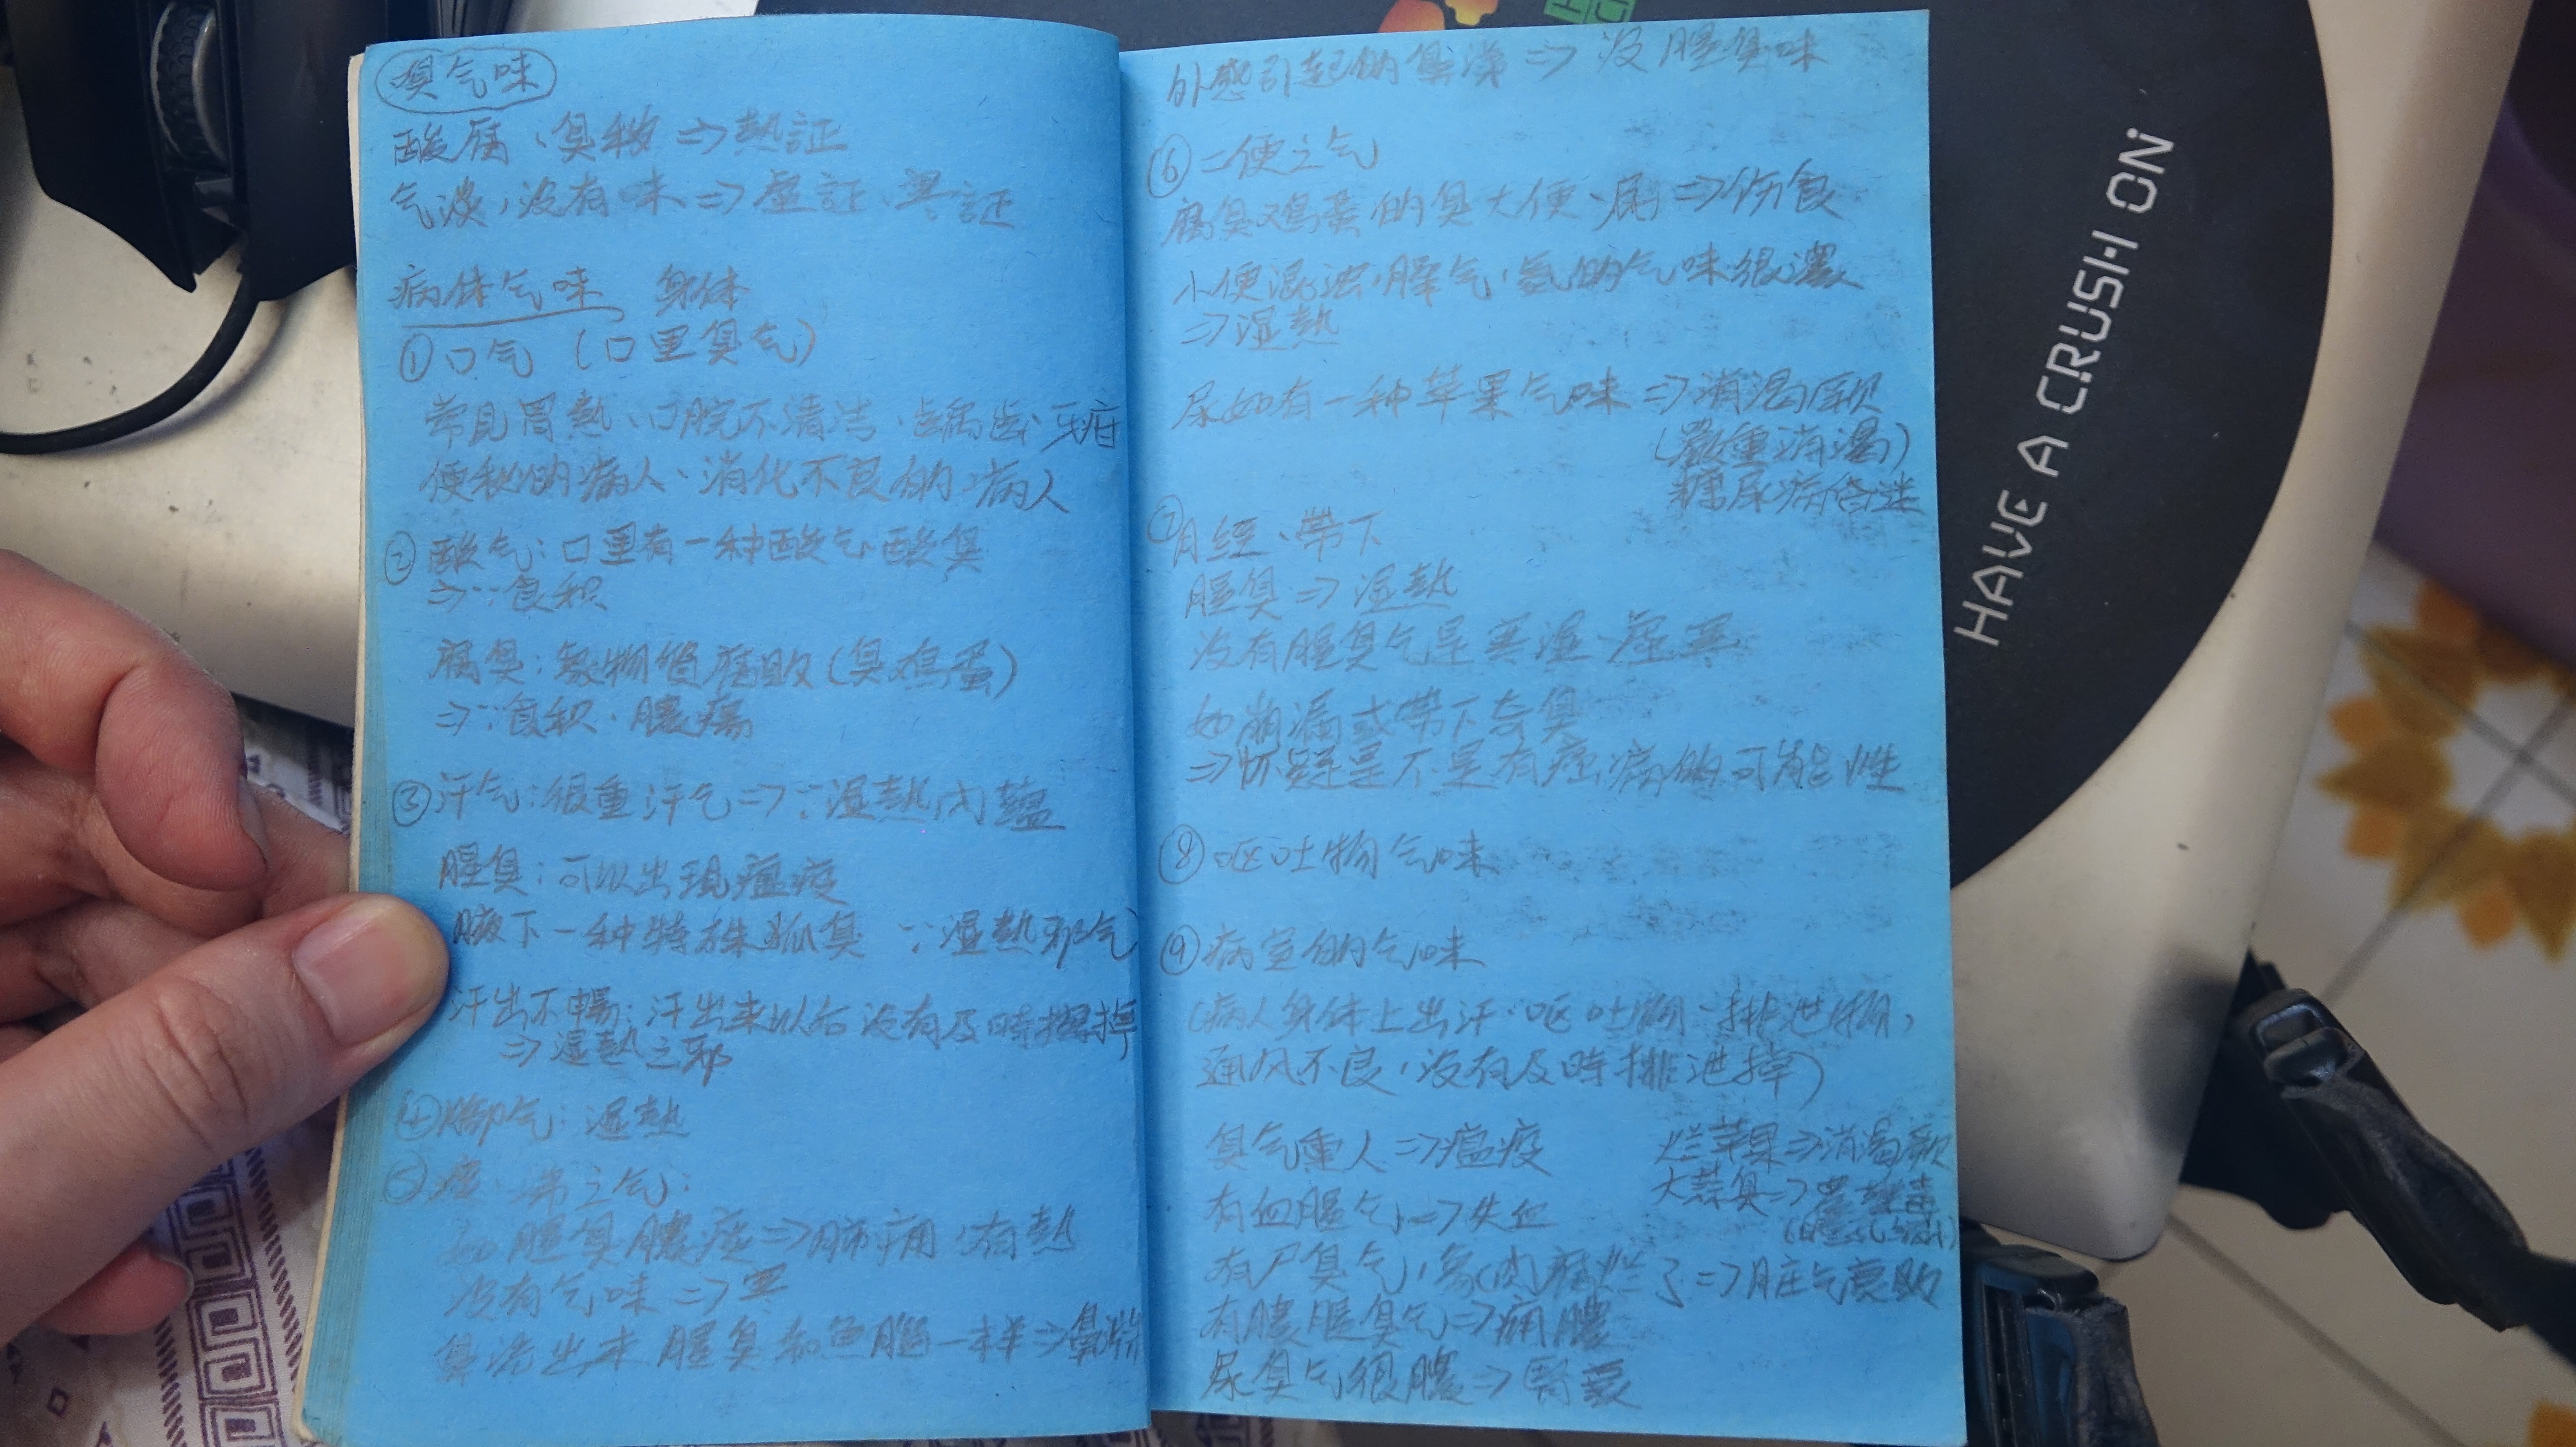 嗅气味
酸腐、臭秽 ⇒ 熱証
气淡,没有味 ⇒ 虚証、寒証
病体气味 身体
① 口气 (口里臭气)
常見胃熱、口腔不清洁、齲齿、牙疳
便秘的病人、消化不良的病人
② 酸气:口里有一种酸气酸臭
⇒∵食积
腐臭:食物腐敗(臭鸡蛋)
⇒∵食积、膿瘍
③ 汗气:很重汗气 ⇒∵湿熱内蘊
腥臭:可以出現瘟疫
腋下一种特殊狐臭 ∵湿熱邪气
汗出不暢:汗出来以后没有及時擦掉
⇒ 湿熱之邪
④ 脚气:湿熱
⑤ 痰、涕之气:
如腥臭膿痰 ⇒ 肺痈,有熱
没有气味 ⇒ 寒
鼻流出来腥臭和魚腦一样 ⇒
外感引起的鼻涕 ⇒ 没腥臭味
⑥ 二便之气
腐臭鸡蛋的臭大便、屑 ⇒ 伤食
小便混浊,臊气,氨的气味很濃
⇒ 湿熱
尿如有一种苹果气味 ⇒ 消渴厥
(嚴重消渴)
糖尿病昏迷
⑦ 月經、带下
腥臭 ⇒ 湿熱
没有腥臭气是寒湿、虚寒
如崩漏或带下奇臭
⇒ 怀疑是不是有癌病的可能性
⑧ 呕吐物气味
⑨ 病室的气味
(病人身体上出汗、呕吐物、排泄物,
通风不良,没有及時排泄掉)
臭气重人 ⇒ 瘟疫
烂苹果 ⇒ 消渴厥
有血腥气 ⇒ 失血
大蒜臭 ⇒ 農
有尸臭气,象肉腐烂了 ⇒ 脏气衰敗
有膿腥臭气 ⇒ 痈膿
尿臭气很膿 ⇒ 腎衰
HAVE A CRUSH ON